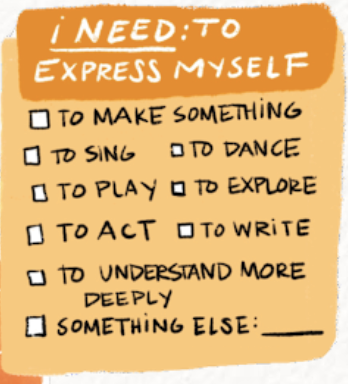 i NEED: TO
EXPRESS MYSELF
TO MAKE SOMETHING
TO SiNG TO DANCE
TO PLAY TO EXPLORE
TO ACT TO WRiTE
TO UNDERSTAND MORE
DEEPLY
SOMETHiNG ELSE: ____